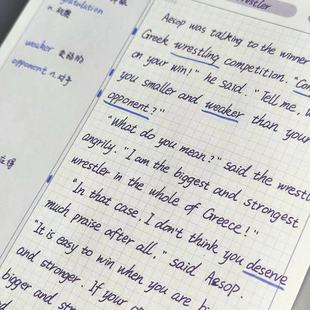 Wrestler
Aesop was talking to the winner
Greek wrestling competition. "Con
on your win!" he said. "Tell me, w
you smaller and weaker than your
opponent?"
"What do you mean?" said the wrestl
angrily. "I am the biggest and strongest
wrestler in the whole of Greece!"
"In that case, I don't think you deserve
much praise after all," said Aesop.
"It is easy to win when you are bi
and stronger. If your o
bigger and str
gratulation
weaker 更弱的
opponent n.对手